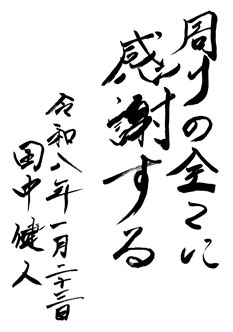 周りの全てに
感謝する
令和八年一月二十三日
田中健人